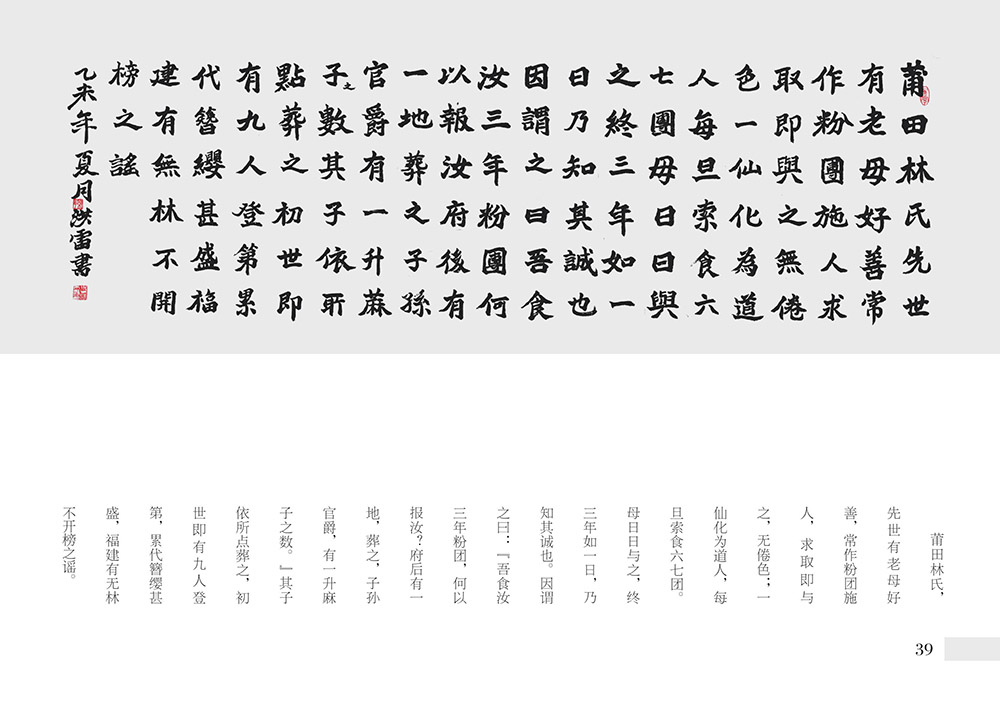 莆田林氏先世
有老母好善常
作粉團施人求
取即與之無倦
色一仙化為道
人每旦索食六
七團母日日與
之終三年如一
日乃知其誠也
因謂之曰吾食
汝三年粉團何
以報汝府後有
一地葬之子孫
官爵有一升蔴
子之數其子依所
點葬之初世即
有九人登第累
代簪纓甚盛福
建有無林不開
榜之謠
乙未年夏月洪雷書
莆田林氏，
先世有老母好
善，常作粉团施
人，求取即与
之，无倦色；一
仙化为道人，每
旦索食六七团。
母日日与之，终
三年如一日，乃
知其诚也。因谓
之曰：『吾食汝
三年粉团，何以
报汝？府后有一
地，葬之，子孙
官爵，有一升麻
子之数。』其子
依所点葬之，初
世即有九人登
第，累代簪缨甚
盛，福建有无林
不开榜之谣。
39